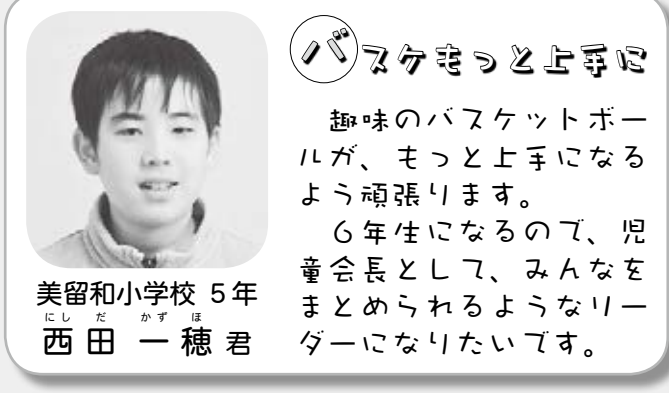 バスケもっと上手に
趣味のバスケットボー
ルが、もっと上手になる
よう頑張ります。
6年生になるので、児
童会長として、みんなを
まとめられるようなリー
ダーになりたいです。
美留和小学校 5年
にし だ かず ほ
西田 一穂 君